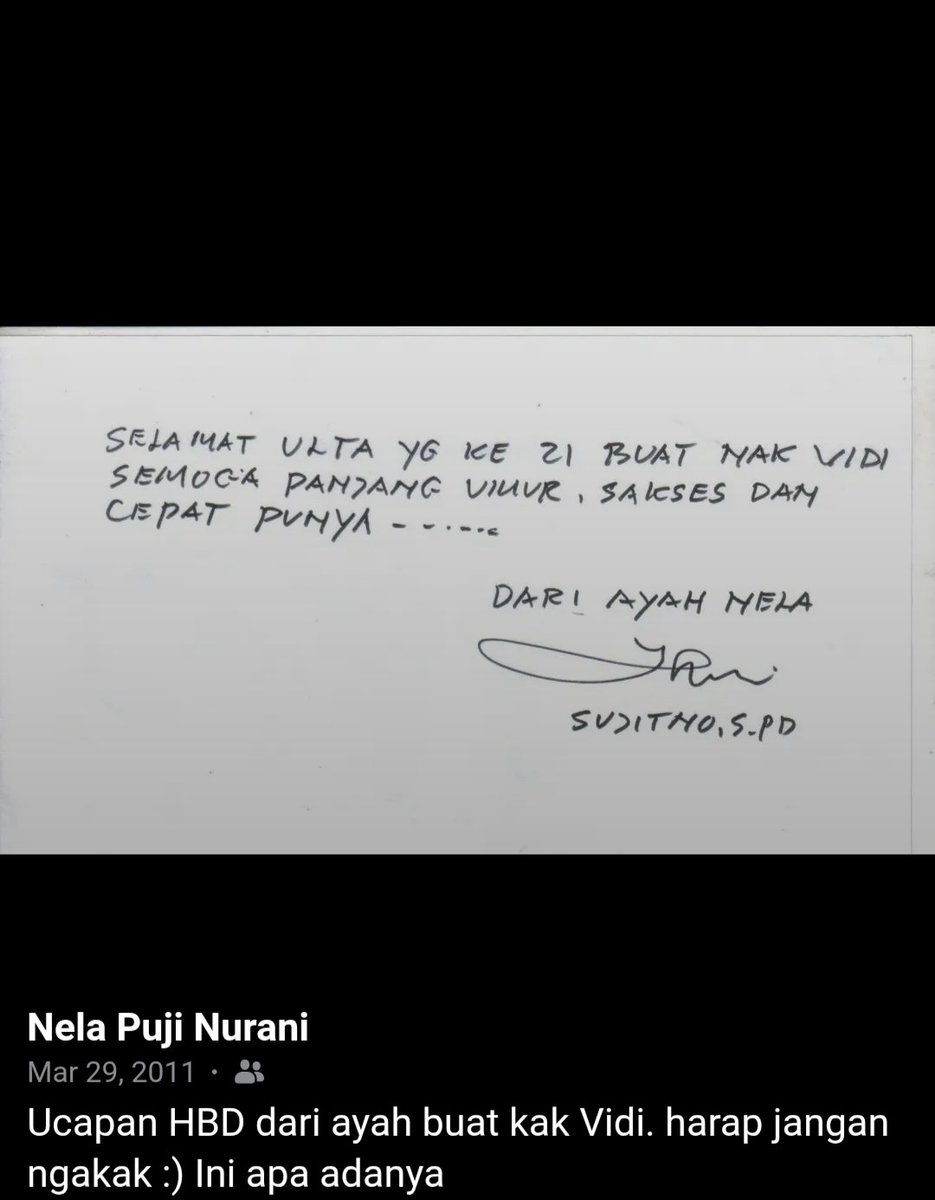 SELAMAT ULTA YG KE 21 BUAT NAK VIDI
SEMOGA PANJANG UMUR, SAKSES DAN
CEPAT PUNYA - - . - - .
DARI AYAH NELA
SUJITNO, S.PD
Nela Puji Nurani
Mar 29, 2011 ·
Ucapan HBD dari ayah buat kak Vidi. harap jangan
ngakak :) Ini apa adanya